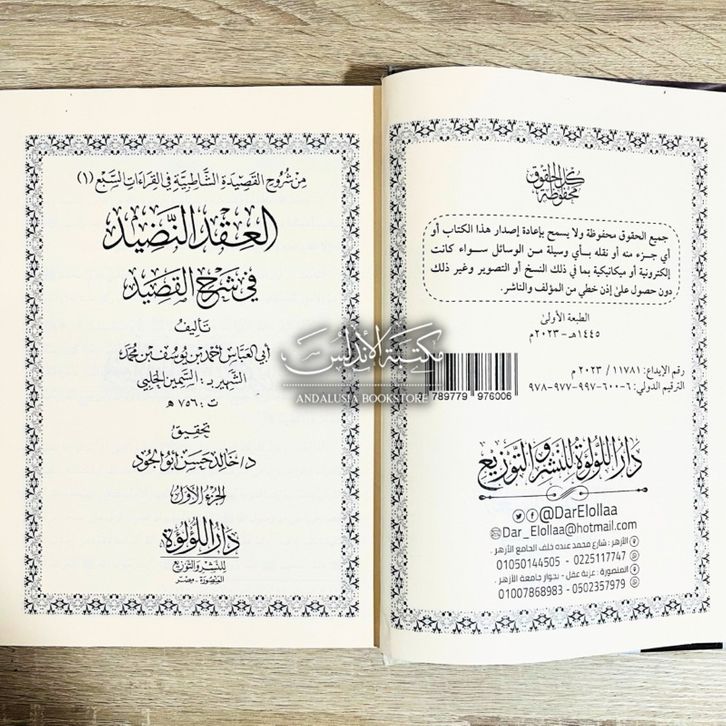 من شروح القصيدة الشاطبية في القراءات السبع (١)
العقد النضيد
في شرح القصيد
تأليف
أبي العباس أحمد بن يوسف بن محمد
الشهير بـ: السمين الحلبي
ت: ٧٥٦ هـ
تحقيق
د/ خالد حسن أبو الجود
الجزء الأول
دار اللؤلؤة
للنشر والتوزيع
المنصورة - مصر
مكتبة الأندلس
ANDALUSIA BOOKSTORE
كل الحقوق
محفوظة
جميع الحقوق محفوظة ولا يسمح بإعادة إصدار هذا الكتاب أو
أي جزء منه أو نقله بأي وسيلة من الوسائل سواء كانت
إلكترونية أو ميكانيكية بما في ذلك النسخ أو التصوير وغير ذلك
دون حصول على إذن خطي من المؤلف والناشر.
الطبعة الأولى
١٤٤٥هـ - ٢٠٢٣م
رقم الإيداع: ١١٧٨١ / ٢٠٢٣م
الترقيم الدولي: ٦-٦٠٠-٩٩٧-٩٧٧-٩٧٨
789779 976006
دار اللؤلؤة للنشر والتوزيع
@DarElollaa
Dar_Elollaa@hotmail.com
الأزهر: شارع محمد عبده خلف الجامع الأزهر .
01050144505 - 0225117747
المنصورة: عزبة عقل - بجوار جامعة الأزهر .
01007868983 - 0502357979